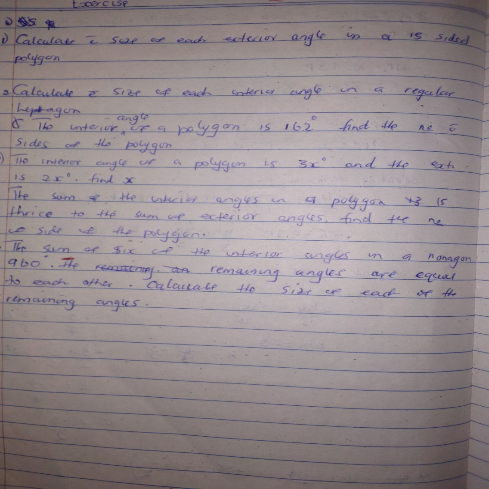 Exercise
1) Calculate ē size of each exterior angle in a 15 sided
polygon
2. Calculate ē size of each interior angle in a regular
heptagon
The interior angle of a polygon is 162° find the no ē
sides of the polygon
The interior angle of a polygon is 3x° and the ext.
is 2x°. find x
The sum of the interior angles in a polygon is
thrice to the sum of exterior angles. find the no
of side of the polygon.
The sum of six of the interior angles in a nonagon
960°. The remaining angles are equal
to each other. Calculate the size of each of the
remaining angles.